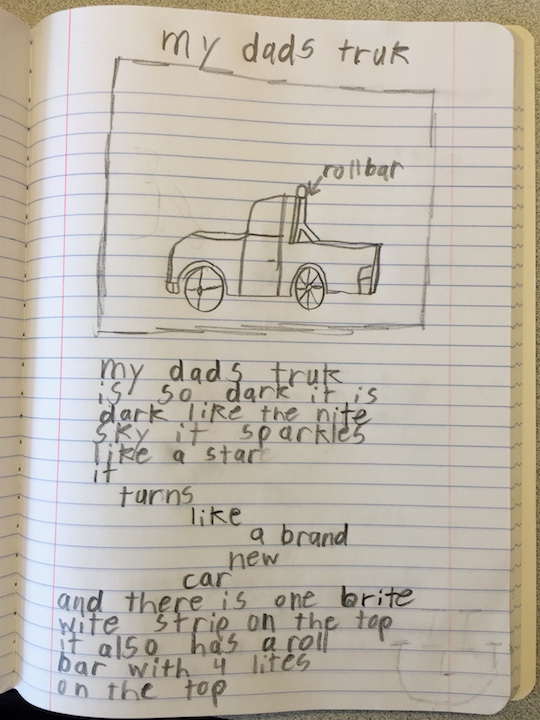 my dads truk
rollbar
my dads truk
is so dark it is
dark like the nite
sky it sparkles
like a star
it
turns
like
a brand
new
car
and there is one brite
wite strip on the top
it also has a roll
bar with 4 lites
on the top